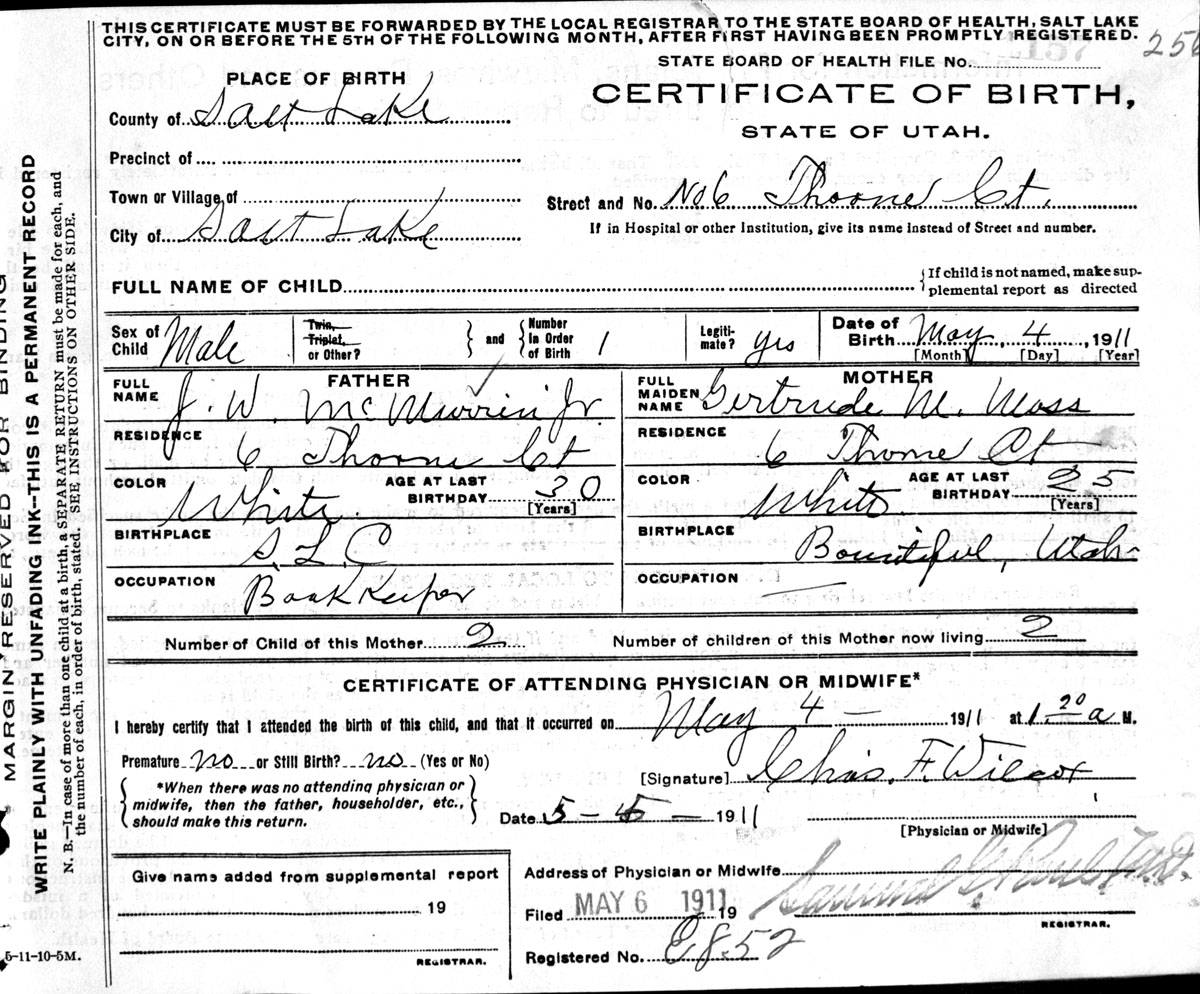 THIS CERTIFICATE MUST BE FORWARDED BY THE LOCAL REGISTRAR TO THE STATE BOARD OF HEALTH, SALT LAKE
CITY, ON OR BEFORE THE 5TH OF THE FOLLOWING MONTH, AFTER FIRST HAVING BEEN PROMPTLY REGISTERED.
256
STATE BOARD OF HEALTH FILE No.
PLACE OF BIRTH
CERTIFICATE OF BIRTH,
STATE OF UTAH.
County of Salt Lake
Precinct of
Town or Village of
Street and No. No 6 Thorne Ct.
City of Salt Lake
If in Hospital or other Institution, give its name instead of Street and number.
FULL NAME OF CHILD
If child is not named, make sup-
plemental report as directed
Sex of Child Male
Twin, Triplet, or Other? and Number in Order of Birth 1
Legiti-mate? yes
Date of Birth May 4, 1911
[Month] [Day] [Year]
FATHER
FULL NAME J. W. McMurrin Jr.
RESIDENCE 6 Thorne Ct
COLOR White AGE AT LAST BIRTHDAY 30 [Years]
BIRTHPLACE S. L. C
OCCUPATION Book Keeper
MOTHER
FULL MAIDEN NAME Gertrude M. Moss
RESIDENCE 6 Thorne Ct
COLOR White AGE AT LAST BIRTHDAY 25 [Years]
BIRTHPLACE Bountiful, Utah
OCCUPATION —
Number of Child of this Mother 2 Number of children of this Mother now living 2
CERTIFICATE OF ATTENDING PHYSICIAN OR MIDWIFE*
I hereby certify that I attended the birth of this child, and that it occurred on May 4 — 1911 at 1 20 a M.
Premature no or Still Birth? no (Yes or No)
[Signature] Chas. F. Wilcox
*When there was no attending physician or
midwife, then the father, householder, etc.,
should make this return.
Date 5 - 5 — 1911
[Physician or Midwife]
Give name added from supplemental report
19
REGISTRAR.
Address of Physician or Midwife
Filed MAY 6 1911 19
Samuel G. Paul
REGISTRAR.
Registered No. E852
5-11-10-5M.
MARGIN RESERVED FOR BINDING
WRITE PLAINLY WITH UNFADING INK—THIS IS A PERMANENT RECORD
N. B.—In case of more than one child at a birth, a SEPARATE RETURN must be made for each, and
the number of each, in order of birth, stated. SEE INSTRUCTIONS ON OTHER SIDE.